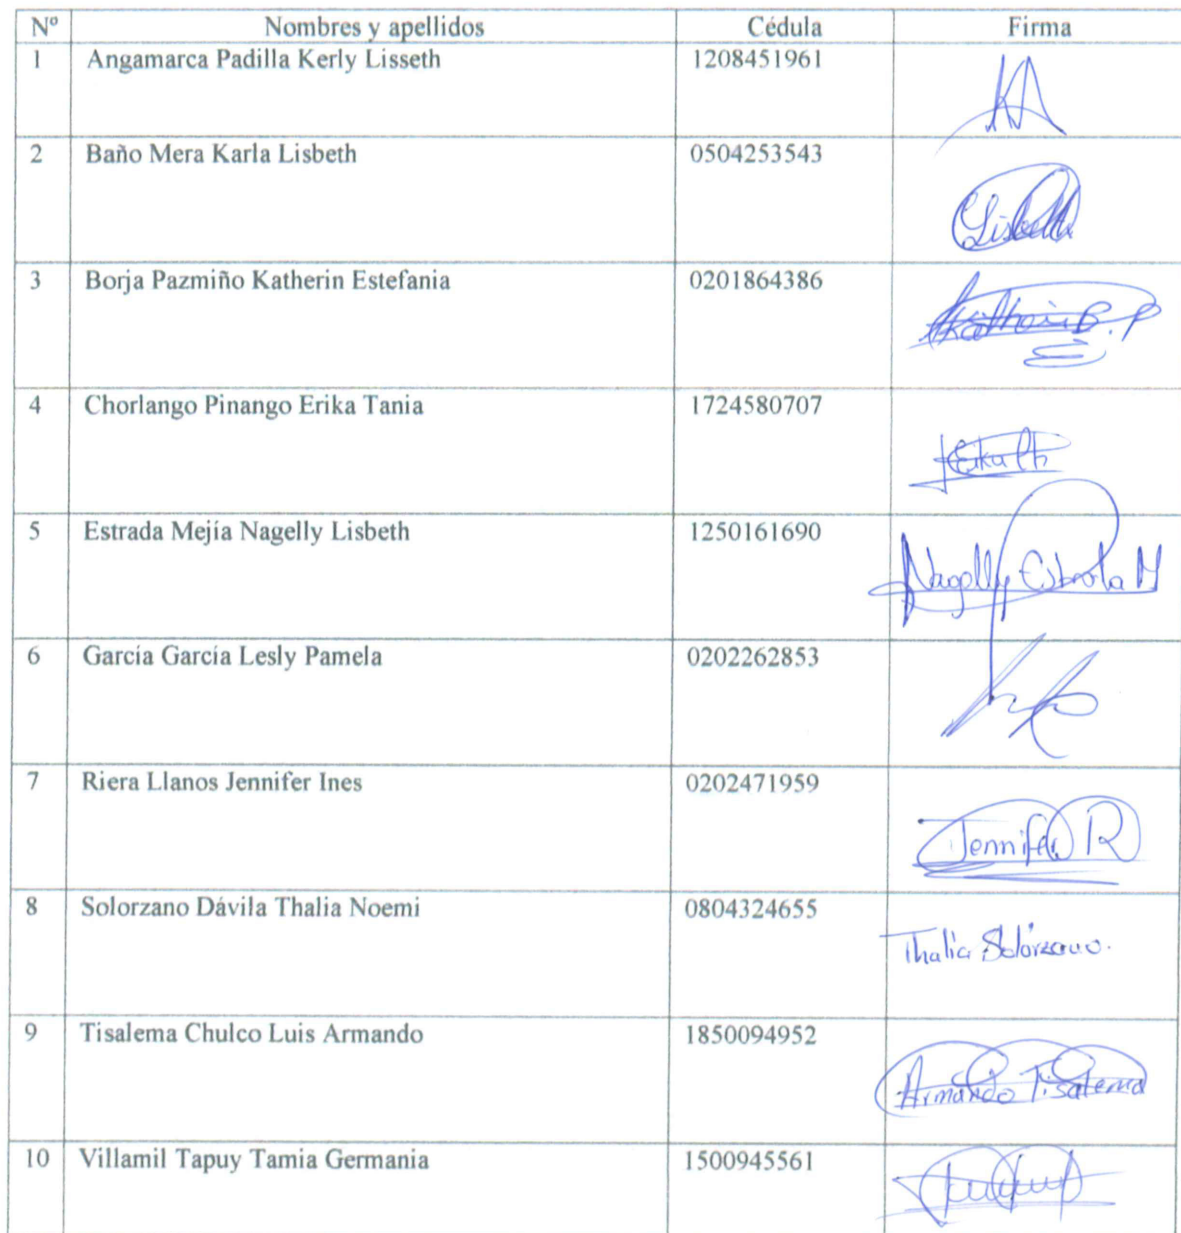 Nº Nombres y apellidos Cédula Firma
1 Angamarca Padilla Kerly Lisseth 1208451961 KA
2 Baño Mera Karla Lisbeth 0504253543 Lisbeth
3 Borja Pazmiño Katherin Estefania 0201864386 Katherin B. P
E
4 Chorlango Pinango Erika Tania 1724580707 Erika Ch
5 Estrada Mejía Nagelly Lisbeth 1250161690 Nagelly Estrada M
6 García García Lesly Pamela 0202262853
7 Riera Llanos Jennifer Ines 0202471959 Jennifer R
8 Solorzano Dávila Thalia Noemi 0804324655 Thalia Solórzano.
9 Tisalema Chulco Luis Armando 1850094952 Armando Tisalema
10 Villamil Tapuy Tamia Germania 1500945561